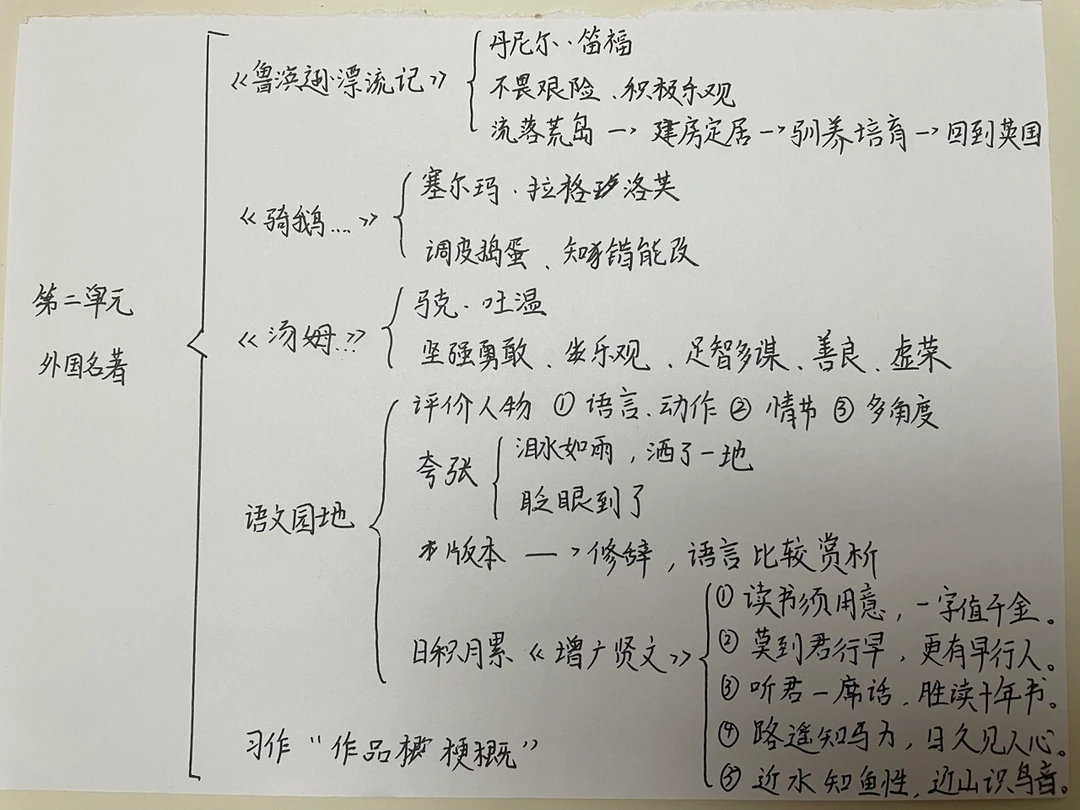 第二单元
外国名著
《鲁滨逊漂流记》
丹尼尔·笛福
不畏艰险、积极乐观
流落荒岛→建房定居→驯养培育→回到英国
《骑鹅....》
塞尔玛·拉格洛芙
调皮捣蛋、知错能改
《汤姆...》
马克·吐温
坚强勇敢、乐观、足智多谋、善良、虚荣
语文园地
评价人物 ①语言、动作 ②情节 ③多角度
夸张
泪水如雨,洒了一地
眨眼到了
版本→修辞,语言比较赏析
日积月累《增广贤文》
①读书须用意,一字值千金。
②莫到君行早,更有早行人。
③听君一席话,胜读十年书。
④路遥知马力,日久见人心。
⑤近水知鱼性,近山识鸟音。
习作“作品梗概”